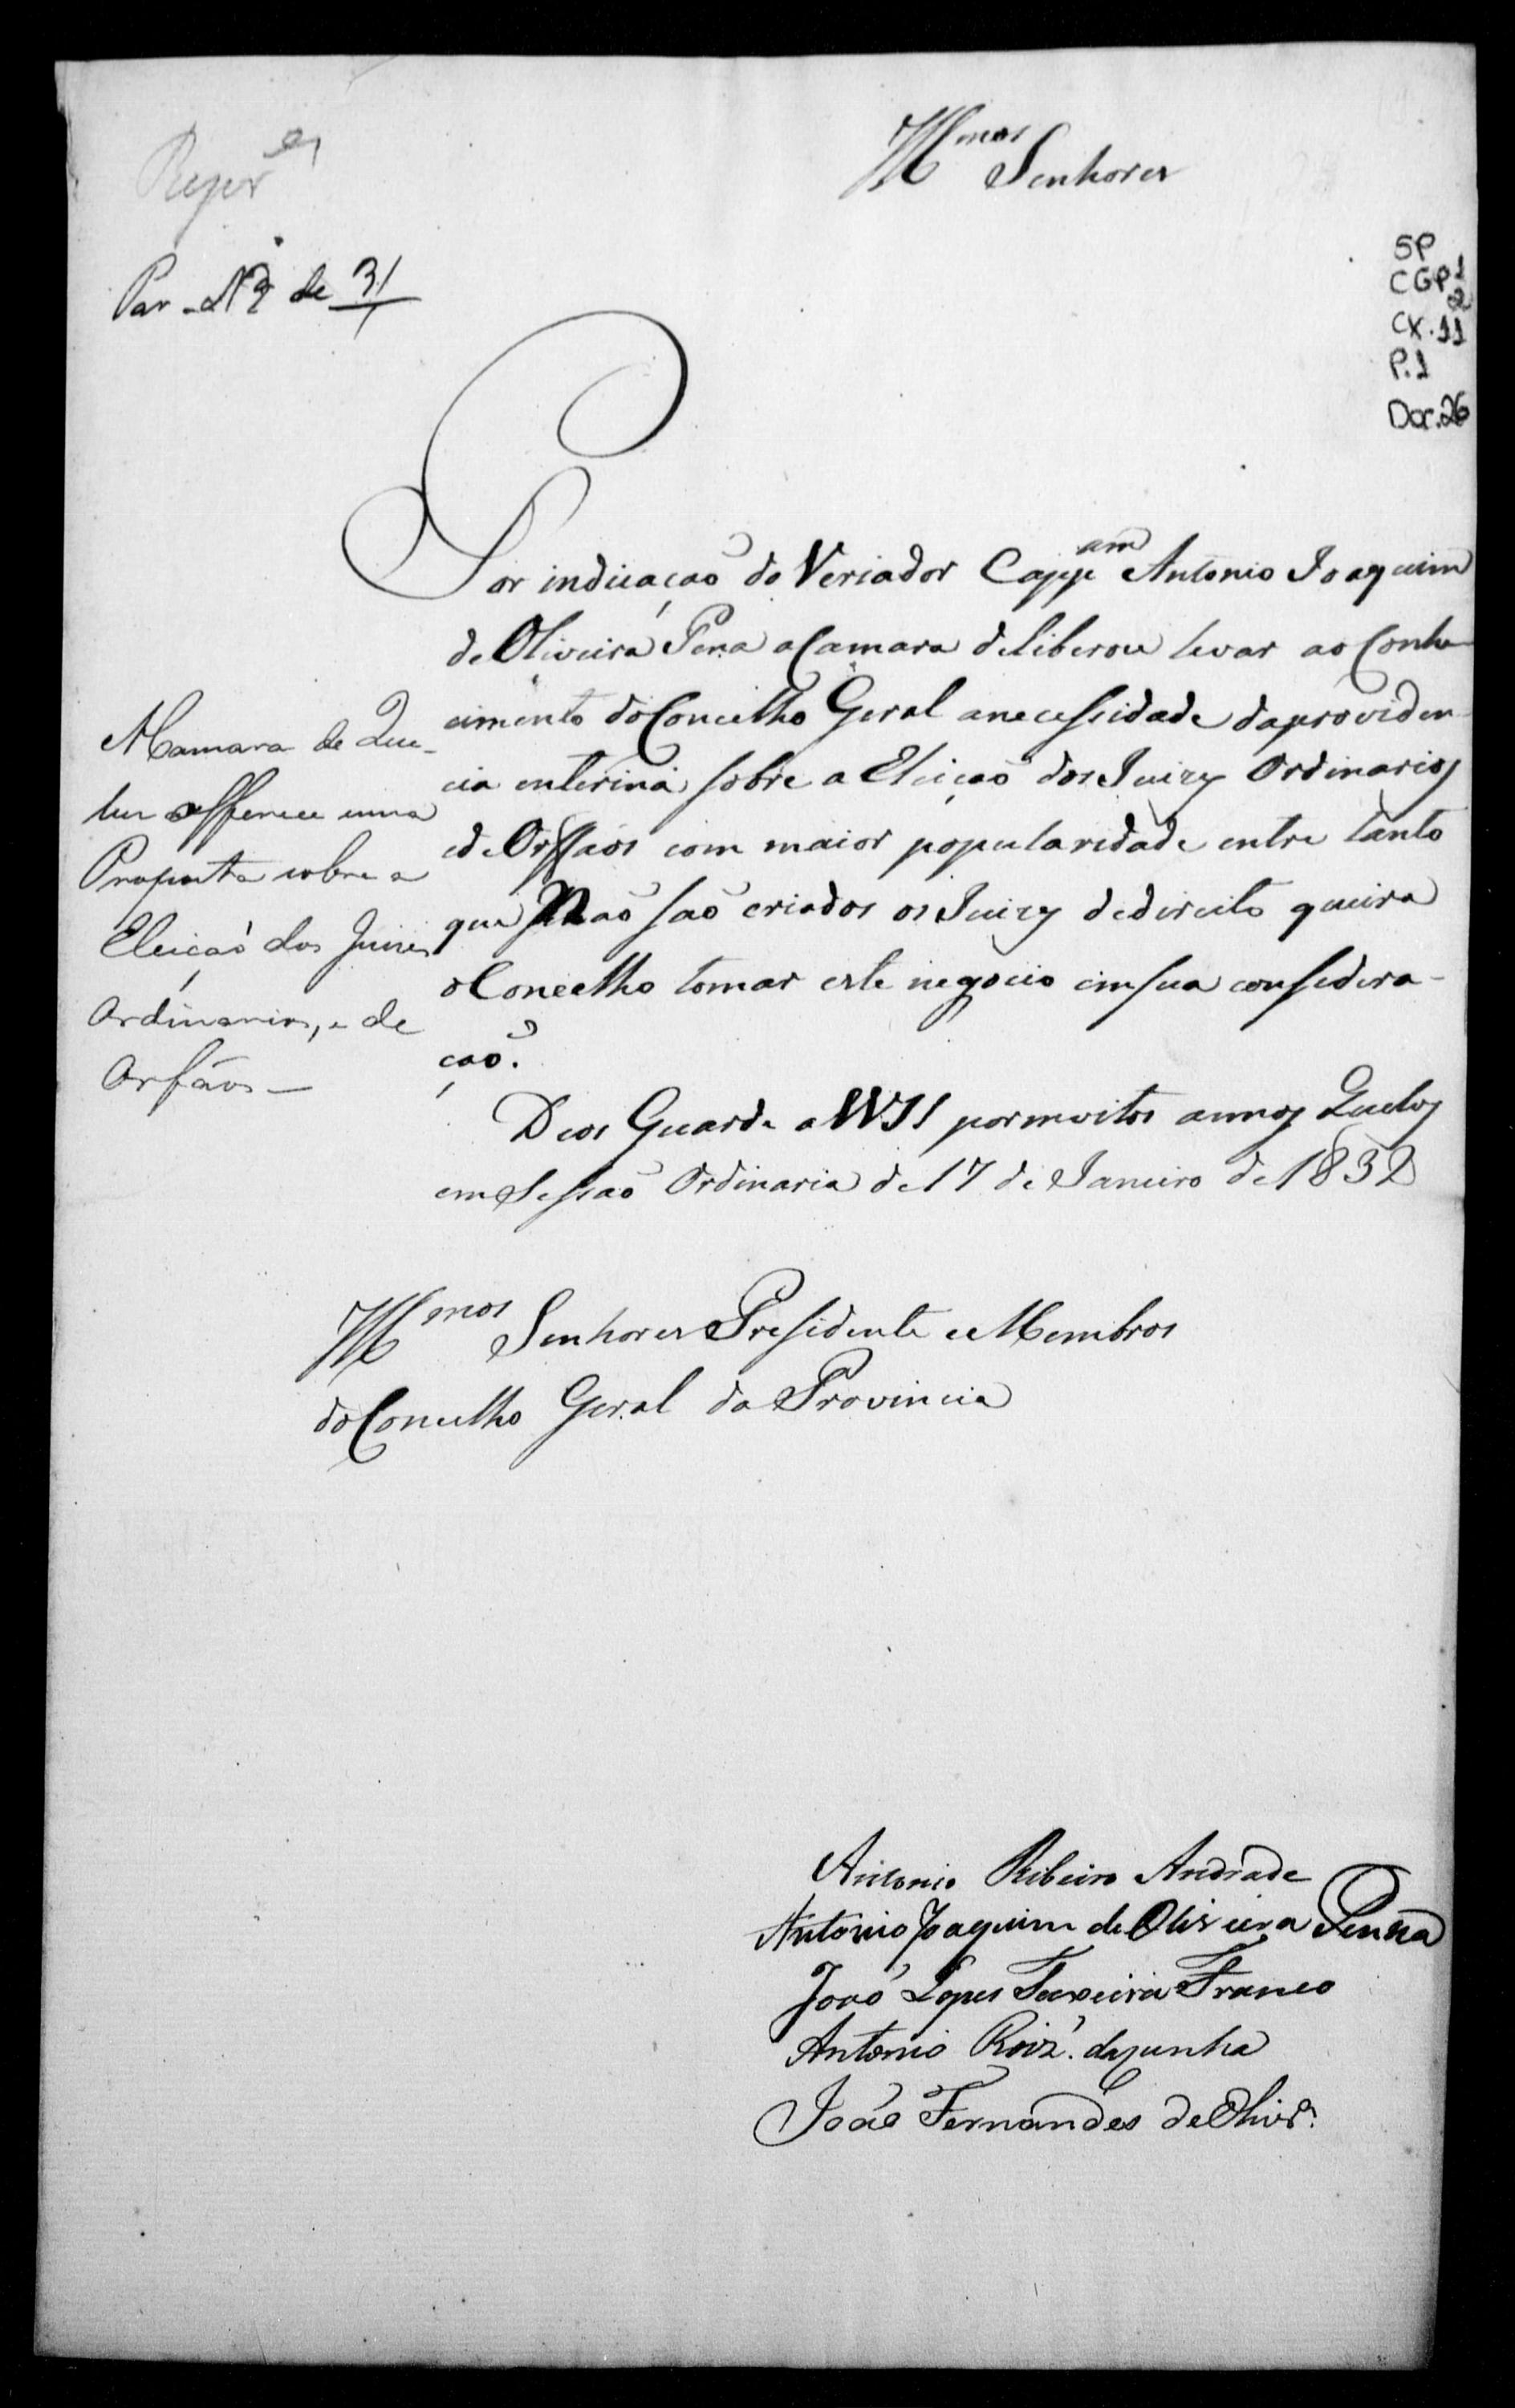 Illmos Senhores
SP
CGP 1
2
CX.11
P.1
Doc.26
Par. Nº de 31
Por indicação do Veriador Cappam Antonio Joaquim
de Oliveira Pena a Camara deliberou levar ao Conhe
cimento do Concelho Geral a necessidade da providen
cia enterina sobre a Eleição dos Juizes Ordinarios
e de Orffãos com maior popularidade entre tanto
que Não são criados os Juizes de direito queira
o Concelho tomar este negocio em sua considera-
ção.
Deos Guarde a VVSS por muitos annos Queluz
em Sessão Ordinaria de 17 de Janeiro de 1832
A Camara de Que-
luz offerece uma
Proposta sobre a
Eleição dos Juizes
Ordinarios, e de
Orfãos —
Illmos Senhores Presidente e Membros
do Concelho Geral da Provincia
Antonio Ribeiro Andrade
Antonio Joaquim de Oliveira Penna
José Lopes Teixeira Franco
Antonio Roiz. da Cunha
João Fernandes de Olivra.